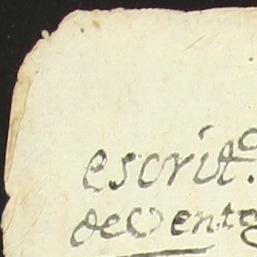 escrit.ª
de Venta